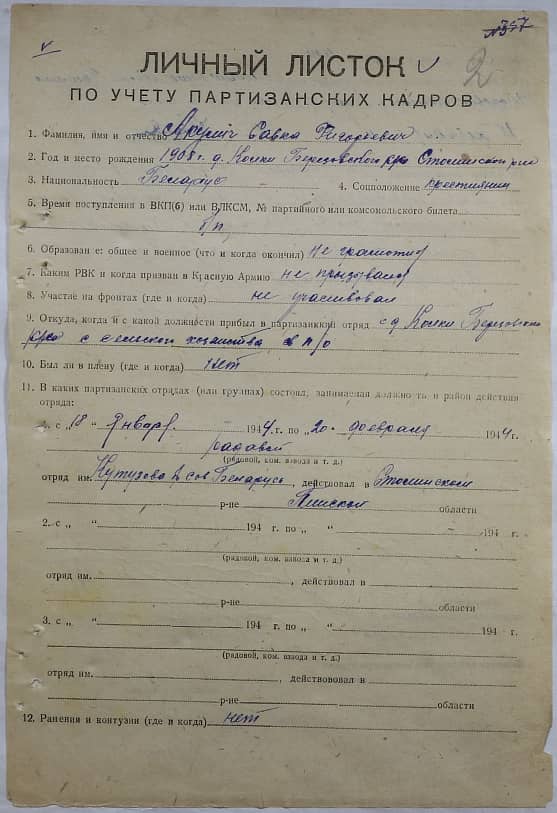 №357
2
ЛИЧНЫЙ ЛИСТОК
ПО УЧЕТУ ПАРТИЗАНСКИХ КАДРОВ
1. Фамилия, имя и отчество Савка Григорьевич
2. Год и место рождения 1908 г. д. Кошки Березовского р-на Столинского р-на
3. Национальность Беларус 4. Соцположение крестьянин
5. Время поступления в ВКП(б) или ВЛКСМ, № партийного или комсомольского билета
б/п
6. Образован е: общее и военное (что и когда окончил) не грамотный
7. Каким РВК и когда призван в Красную Армию не призывался
8. Участие на фронтах (где и когда) не участвовал
9. Откуда, когда и с какой должности прибыл в партизанкий отряд с д. Кошки
с сельского хозяйства в п/о
10. Был ли в плену (где и когда) нет
11. В каких партизанских отрядах (или группах) состоял, занимаемая должно ть и район действия
отряда:
1. с „ 18 “ Января 1944 г. по „ 20 “ февраля 1944 г.
радавой
(рядовой, ком. взвода и т. д.)
отряд им. Кутузова Сов Беларусь, действовал в Столинском
р-не Пинской области
2. с „ “ 194 г. по „ “ 194 г.
(рядовой, ком. взвода и т. д.)
отряд им. , действовал в
р-не области
3. с „ “ 194 г. по „ “ 194 г.
(рядовой, ком. взвода и т. д.)
отряд им. , действововал в
р-не области
12. Ранения и контузии (где и когда) нет